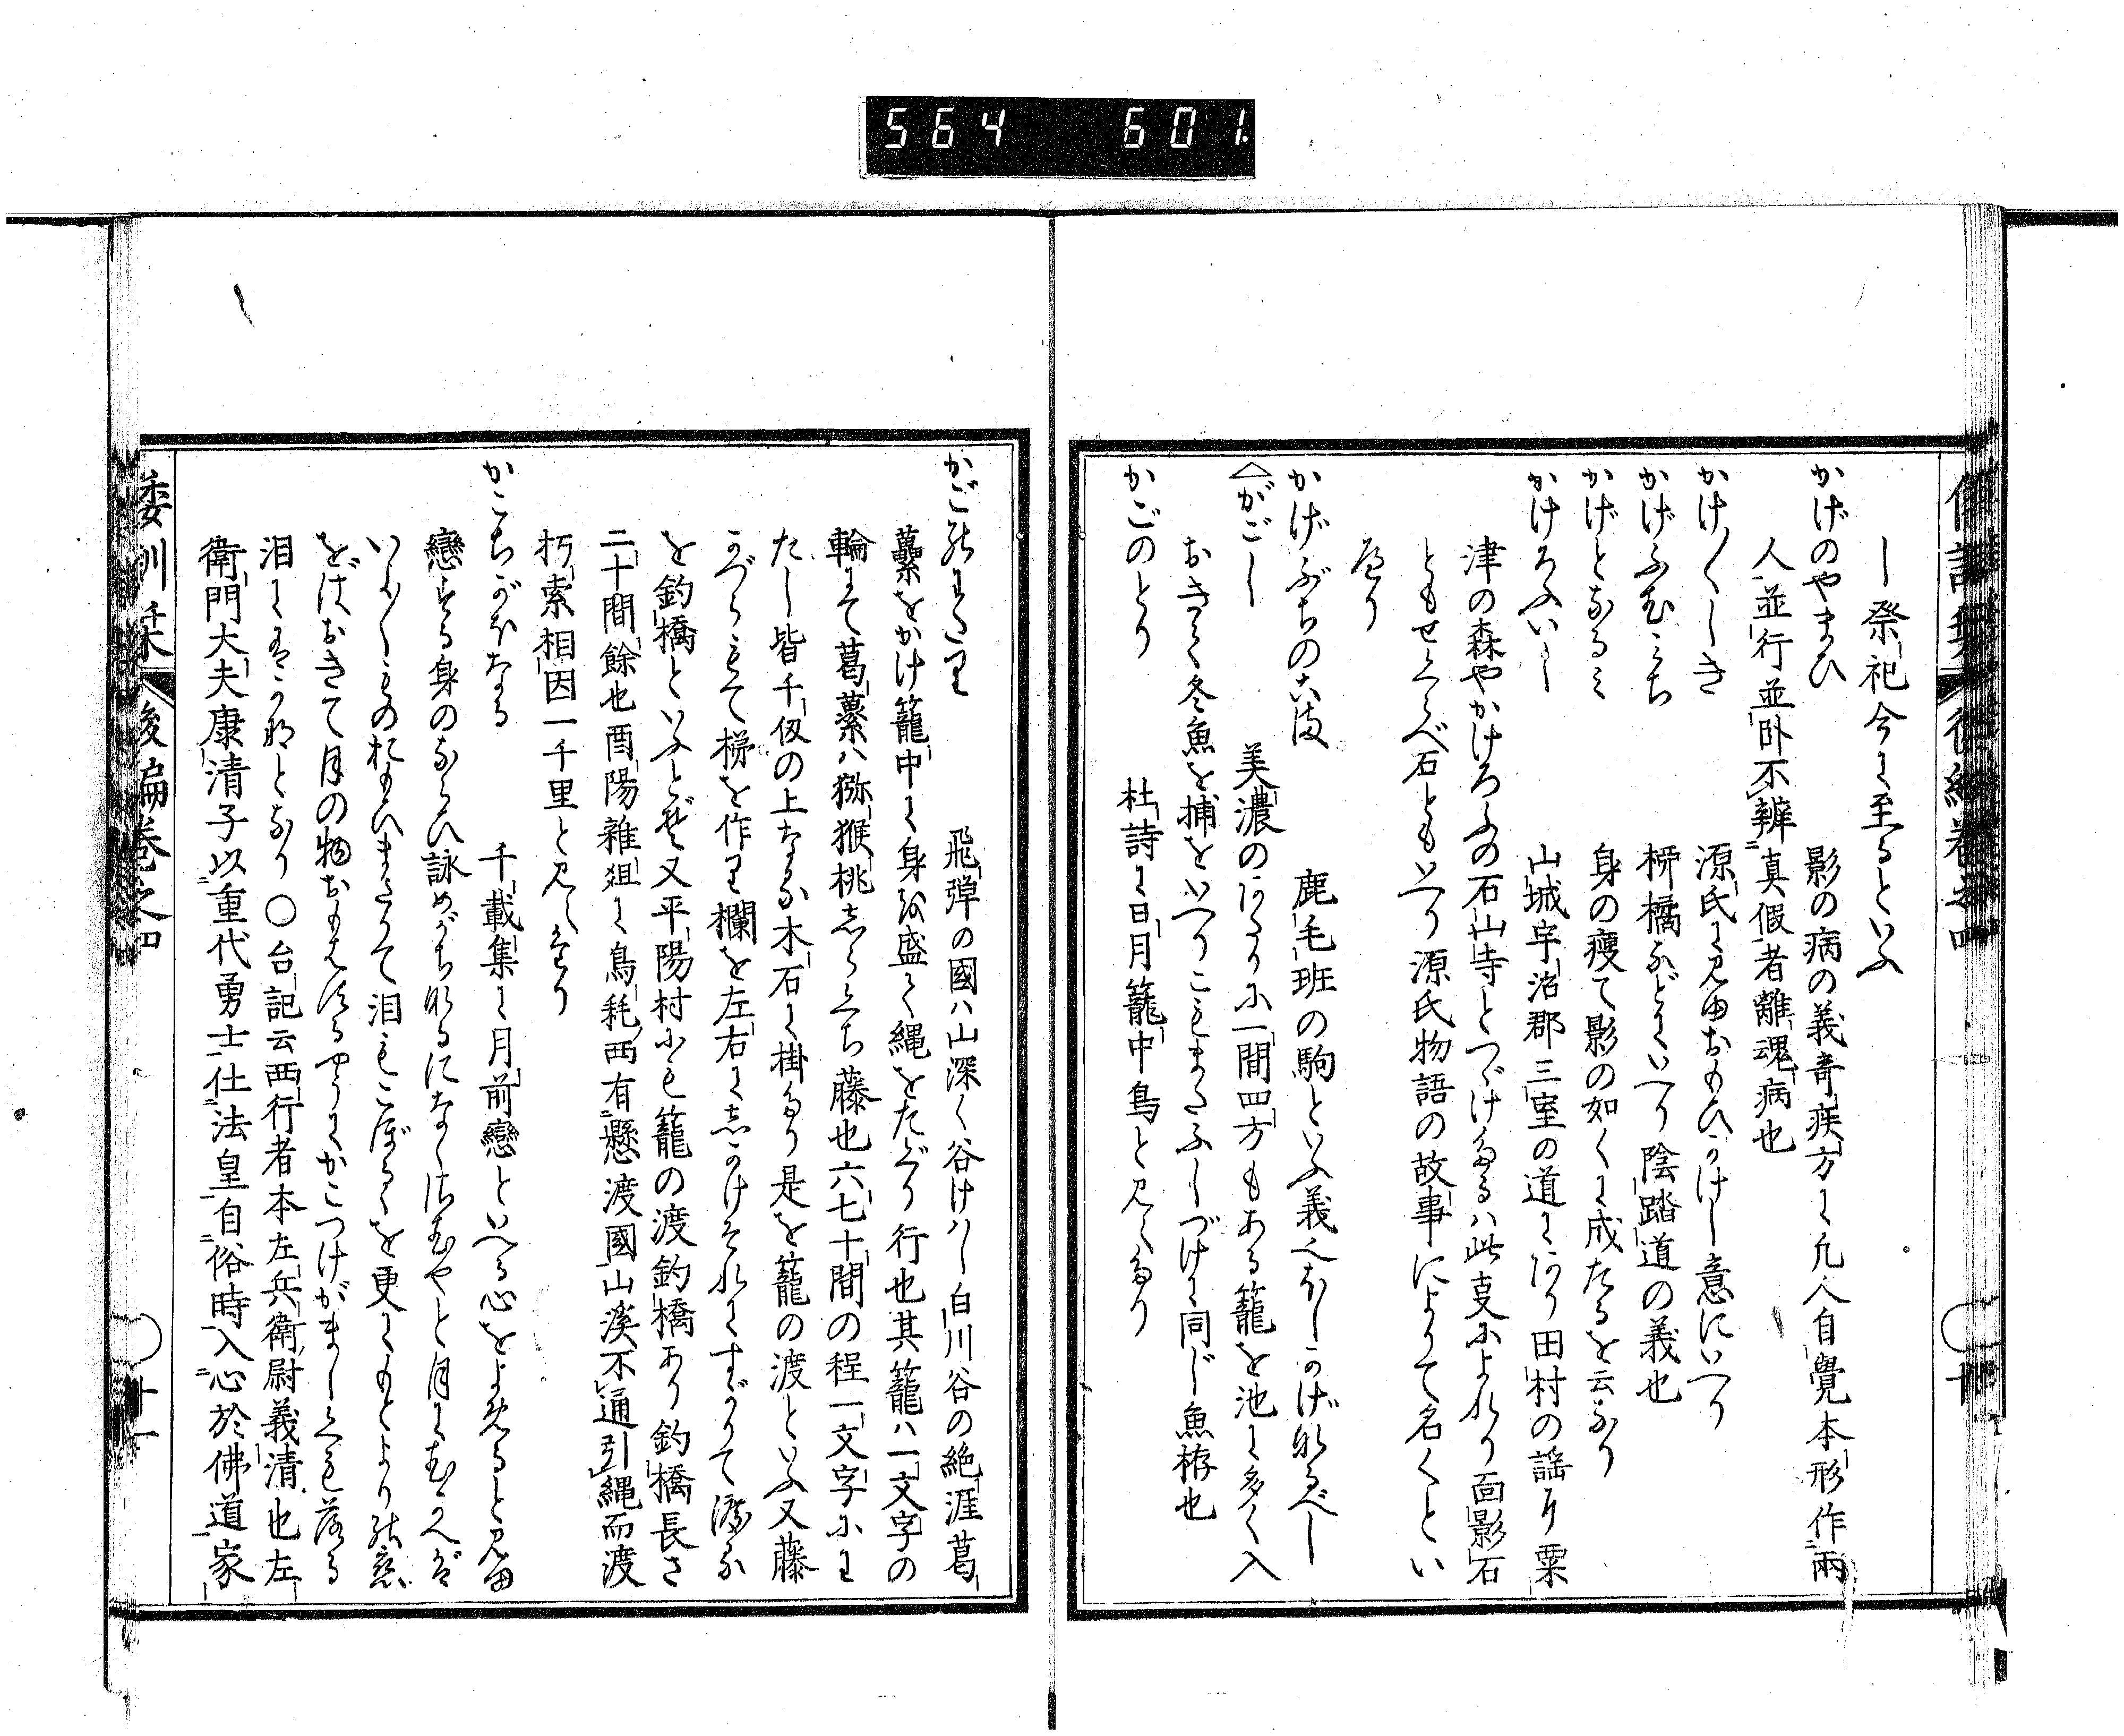 564 601
し祭祀今に至るといふ
かげのやまひ 影の病の義奇疾方に凡人自覺本形作兩
人並行並卧不辨真假者離魂病也
かけ〱しき 源氏に見ゆおもひかけし意にいへり
かげふむみち 柳橘などにいへり陰踏道の義也
かげとなるミ 身の瘦て影の如くに成たるを云なり
かけろふいし 山城宇治郡三室の道にあり田村の謡に粟
津の森やかけろふの石山寺とつゞけたるハ此事によれり面影石
ともせくらべ石ともいへり源氏物語の故事によりて名くとい
へり
かげぶちのこま 鹿毛班の駒といふ義也おしかげなるべし
△がごし 美濃のあたりに一間四方もある籠を池に多く入
おきて冬魚を捕をいへりこもまたふしづけに同じ魚栫也
かごのとり 杜詩に日月籠中鳥と見えたり
倭訓栞 後編巻之四 十一
かごのわたり 飛弾の國ハ山深く谷けハし白川谷の絶涯葛
蘽をかけ籠中に身を盛て縄をたぐり行也其籠ハ一文字の
輪にて葛蘽ハ猕猴桃しらくち藤也六七十間の程一文字にわ
たし皆千仭の上なる木石に掛たり是を籠の渡といふ又藤
かづらもて梯を作り欄を左右にしかけそれにすがりて渡る
を釣橋といふとぞ又平陽村にも籠の渡釣橋あり釣橋長さ
二十間餘也酉陽雜俎に烏耗西有懸渡國山溪不通引縄而渡
朽索相因一千里と見えたり
かこちがほなる 千載集に月前戀といへる心をよめると見ゆ
戀する身のならひ詠めがちなるになくさむやと月にむかへば
いよ〱ものおもひまさりて泪もこぼるゝを更にもとよりの戀
をばおきて月の物おもはするやうにかこつけがましくも落る
泪にもあるかなとなり〇台記云西行者本左兵衛尉義清也左
衛門大夫康清子以重代勇士仕法皇自俗時入心於佛道家